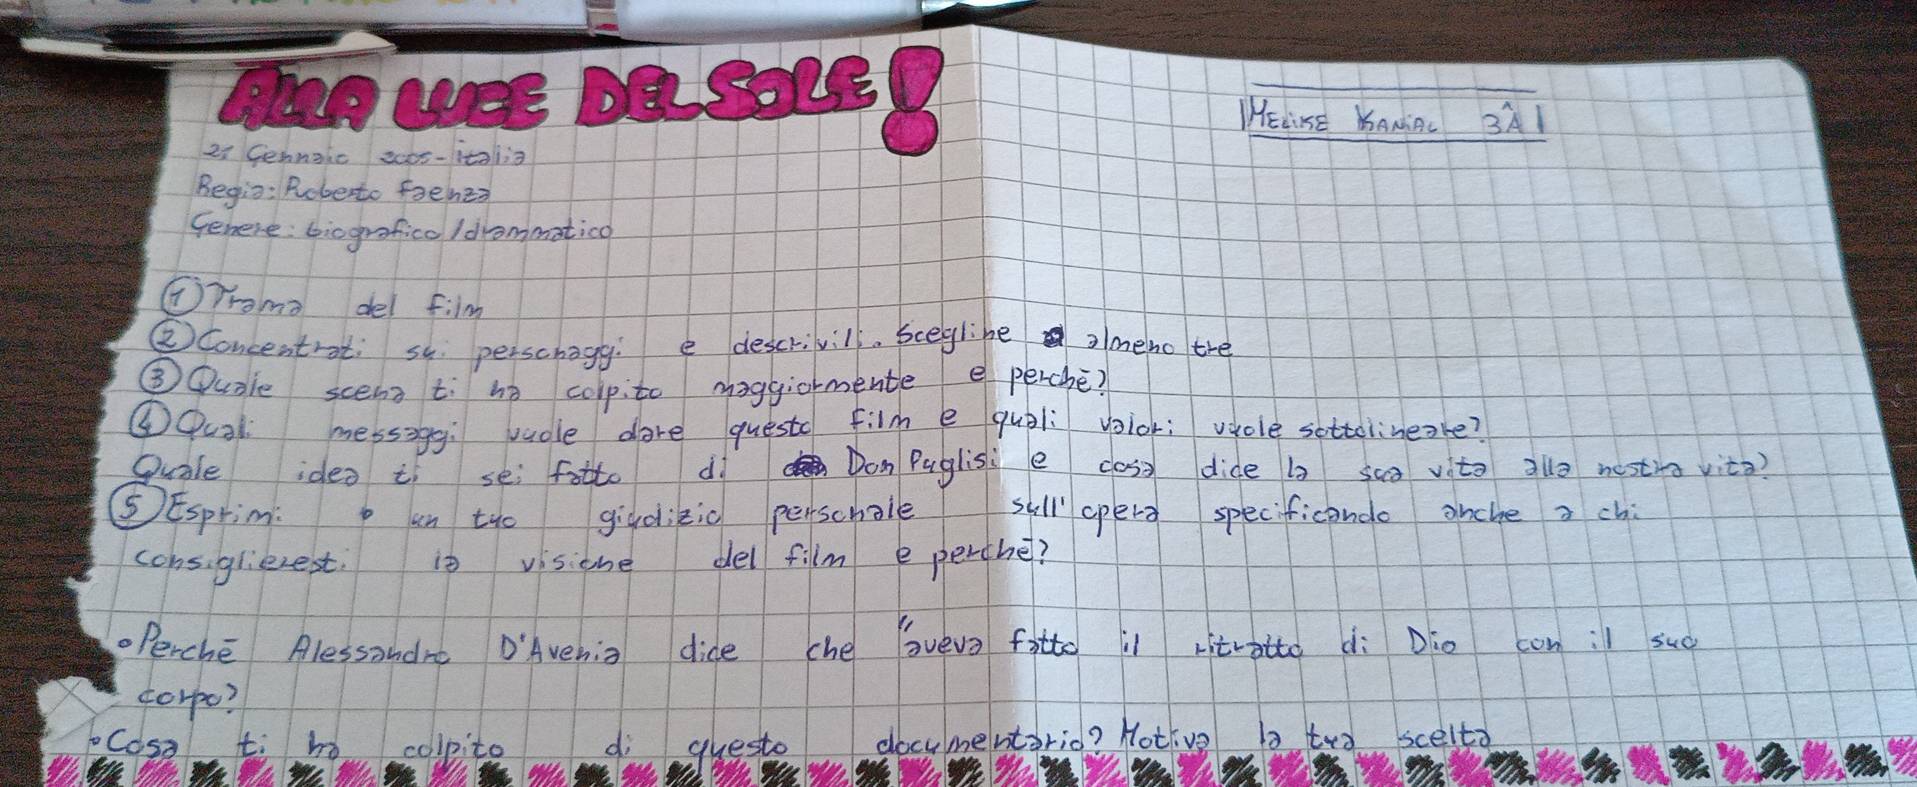 ALLA LUCE DEL SOLE!
|MELIKE KANIAL 3ÂI
21 Gennaio 2005-italia
Regia: Roberto Faenza
Genere: biografico/drammatico
① Trama del film
② Concentrati sui personaggi e descrivili. Scegline almeno tre
③ Quale scena ti ha colpito maggiormente e perchē?
④ Quali messaggi vuole dare questo film e quali valori vuole sottolineare?
Quale idea ti sei fatto di Don Puglisi e cosa dice la sua vita alla nostra vita?
⑤ Esprimi un tuo giudizio personale sull'opera specificando anche a chi
consiglieresti la visione del film e perchē?
• Perchē Alessandro D'Avenia dice che "aveva fatto il ritratto di Dio con il suo
corpo?
• Cosa ti ha colpito di questo documentario? Motiva la tua scelta